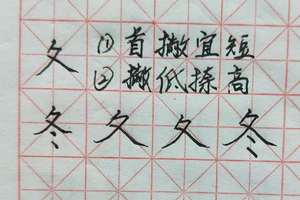 夂 ①首撇宜短
②撇低捺高
冬 夂 夂 冬